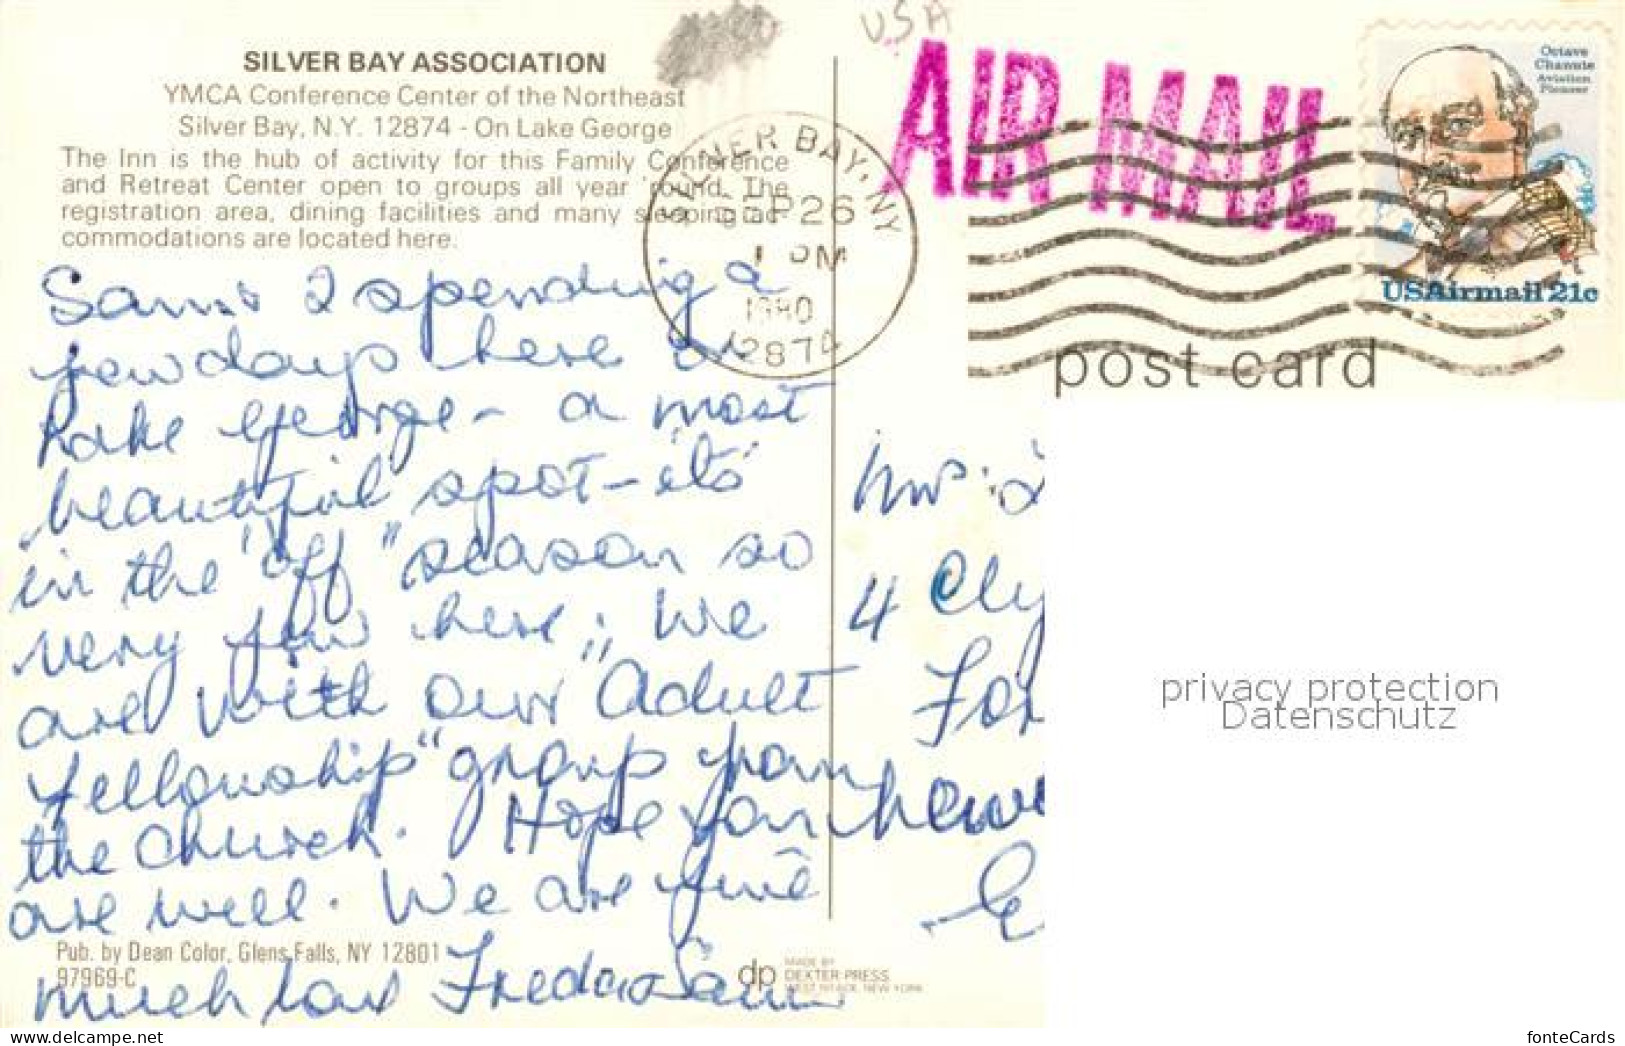 SILVER BAY ASSOCIATION
YMCA Conference Center of the Northeast
Silver Bay, N.Y. 12874 - On Lake George
The Inn is the hub of activity for this Family Conference
and Retreat Center open to groups all year 'round. The
registration area, dining facilities and many sleeping ac-
commodations are located here.
USA
AIR MAIL
SILVER BAY, NY
SEP 26
1 PM
1980
12874
Octave
Chanute
Aviation
Pioneer
USAirmail 21c
post card
spending a
few days here in
Lake George - a most
beautiful spot - its
in the "off" season so
very few here; We
are with our "Adult
Fellowship" group from
the Church. Hope you
are well. We are fine
much love
4
privacy protection
Datenschutz
Pub. by Dean Color, Glens Falls, NY 12801
97969-C
dp
MADE BY
DEXTER PRESS
WEST NYACK, NEW YORK
delcampe.net
fonteCards